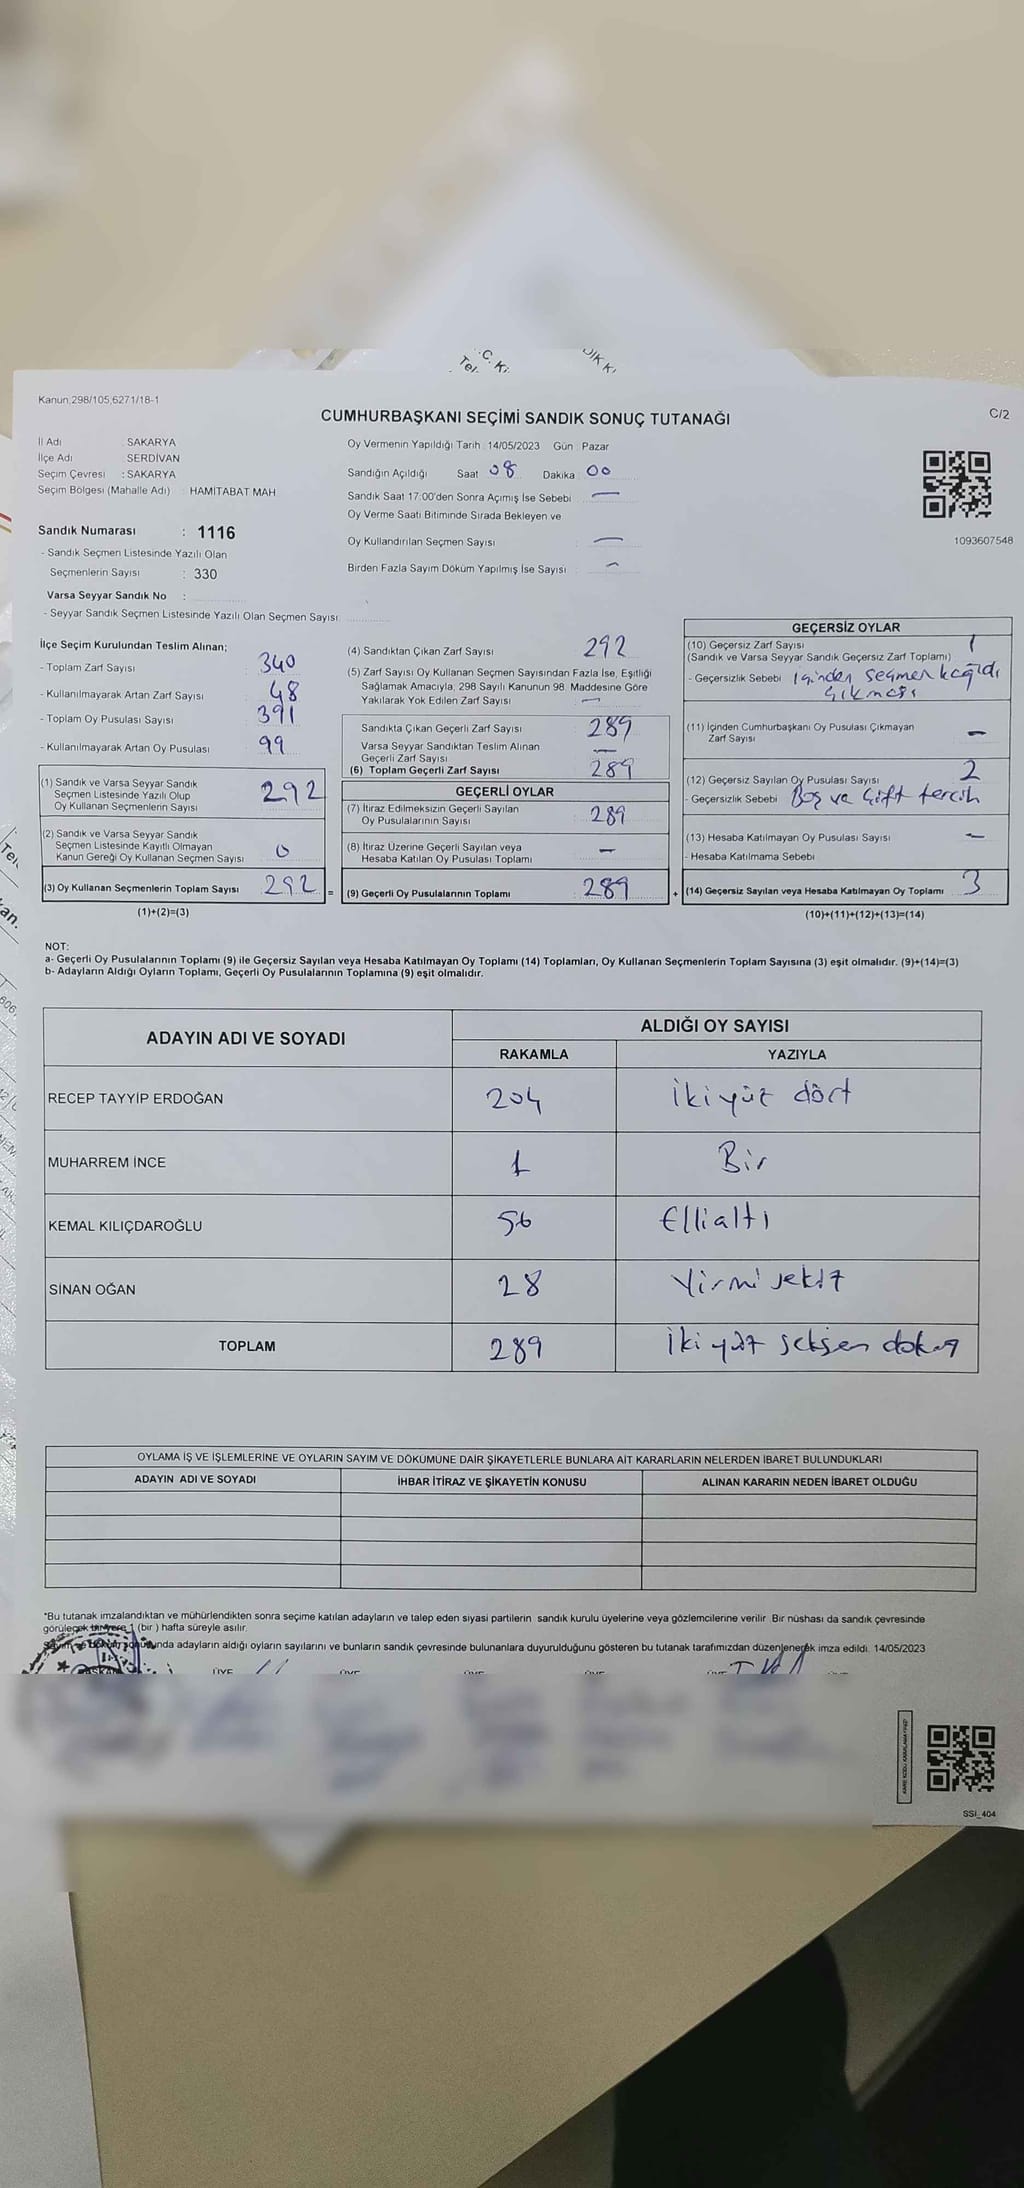 .C. Ki
Tel.
DIK K
Kanun 298/105,6271/18-1
C/2
CUMHURBAŞKANI SEÇİMİ SANDIK SONUÇ TUTANAĞI
İl Adı : SAKARYA
İlçe Adı : SERDİVAN
Seçim Çevresi : SAKARYA
Seçim Bölgesi (Mahalle Adı) : HAMİTABAT MAH.
Oy Vermenin Yapıldığı Tarih : 14/05/2023 Gün : Pazar
Sandığın Açıldığı Saat 08 Dakika 00
Sandık Saat 17:00'den Sonra Açımış İse Sebebi —
Oy Verme Saati Bitiminde Sırada Bekleyen ve
Oy Kullandırılan Seçmen Sayısı : —
Birden Fazla Sayım Döküm Yapılmış İse Sayısı : —
1093607548
Sandık Numarası : 1116
- Sandık Seçmen Listesinde Yazılı Olan
Seçmenlerin Sayısı : 330
Varsa Seyyar Sandık No :
- Seyyar Sandık Seçmen Listesinde Yazılı Olan Seçmen Sayısı:
İlçe Seçim Kurulundan Teslim Alınan;
- Toplam Zarf Sayısı : 340
- Kullanılmayarak Artan Zarf Sayısı : 48
- Toplam Oy Pusulası Sayısı : 391
- Kullanılmayarak Artan Oy Pusulası : 99
(1) Sandık ve Varsa Seyyar Sandık
Seçmen Listesinde Yazılı Olup
Oy Kullanan Seçmenlerin Sayısı 292
(2) Sandık ve Varsa Seyyar Sandık
Seçmen Listesinde Kayıtlı Olmayan
Kanun Gereği Oy Kullanan Seçmen Sayısı 0
(3) Oy Kullanan Seçmenlerin Toplam Sayısı 292
(1)+(2)=(3)
=
(4) Sandıktan Çıkan Zarf Sayısı 292
(5) Zarf Sayısı Oy Kullanan Seçmen Sayısından Fazla İse, Eşitliği
Sağlamak Amacıyla, 298 Sayılı Kanunun 98. Maddesine Göre
Yakılarak Yok Edilen Zarf Sayısı —
Sandıkta Çıkan Geçerli Zarf Sayısı 289
Varsa Seyyar Sandıktan Teslim Alınan
Geçerli Zarf Sayısı —
(6) Toplam Geçerli Zarf Sayısı 289
GEÇERLİ OYLAR
(7) İtiraz Edilmeksizin Geçerli Sayılan
Oy Pusulalarının Sayısı 289
(8) İtiraz Üzerine Geçerli Sayılan veya
Hesaba Katılan Oy Pusulası Toplamı —
(9) Geçerli Oy Pusulalarının Toplamı 289
+
GEÇERSİZ OYLAR
(10) Geçersiz Zarf Sayısı 1
(Sandık ve Varsa Seyyar Sandık Geçersiz Zarf Toplamı)
- Geçersizlik Sebebi içinden seçmen kağıdı
çıkması
(11) İçinden Cumhurbaşkanı Oy Pusulası Çıkmayan
Zarf Sayısı —
(12) Geçersiz Sayılan Oy Pusulası Sayısı 2
- Geçersizlik Sebebi Boş ve Çift tercih
(13) Hesaba Katılmayan Oy Pusulası Sayısı —
- Hesaba Katılmama Sebebi
(14) Geçersiz Sayılan veya Hesaba Katılmayan Oy Toplamı 3
(10)+(11)+(12)+(13)=(14)
NOT:
a- Geçerli Oy Pusulalarının Toplamı (9) ile Geçersiz Sayılan veya Hesaba Katılmayan Oy Toplamı (14) Toplamları, Oy Kullanan Seçmenlerin Toplam Sayısına (3) eşit olmalıdır. (9)+(14)=(3)
b- Adayların Aldığı Oyların Toplamı, Geçerli Oy Pusulalarının Toplamına (9) eşit olmalıdır.
ADAYIN ADI VE SOYADI
ALDIĞI OY SAYISI
RAKAMLA YAZIYLA
RECEP TAYYİP ERDOĞAN 204 ikiyüz dört
MUHARREM İNCE 1 Bir
KEMAL KILIÇDAROĞLU 56 Ellialtı
SİNAN OĞAN 28 Yirmi sekiz
TOPLAM 289 ikiyüz seksen dokuz
OYLAMA İŞ VE İŞLEMLERİNE VE OYLARIN SAYIM VE DÖKÜMÜNE DAİR ŞİKAYETLERLE BUNLARA AİT KARARLARIN NELERDEN İBARET BULUNDUKLARI
ADAYIN ADI VE SOYADI İHBAR İTİRAZ VE ŞİKAYETİN KONUSU ALINAN KARARIN NEDEN İBARET OLDUĞU
*Bu tutanak imzalandıktan ve mühürlendikten sonra seçime katılan adayların ve talep eden siyasi partilerin sandık kurulu üyelerine veya gözlemcilerine verilir. Bir nüshası da sandık çevresinde
görülecek bir yere 1 (bir ) hafta süreyle asılır.
Sayım ve döküm sonucunda adayların aldığı oyların sayılarını ve bunların sandık çevresinde bulunanlara duyurulduğunu gösteren bu tutanak tarafımızdan düzenlenerek imza edildi. 14/05/2023
BAŞKAN ÜYE ÜYE ÜYE ÜYE ÜYE ÜYE
SSİ_404